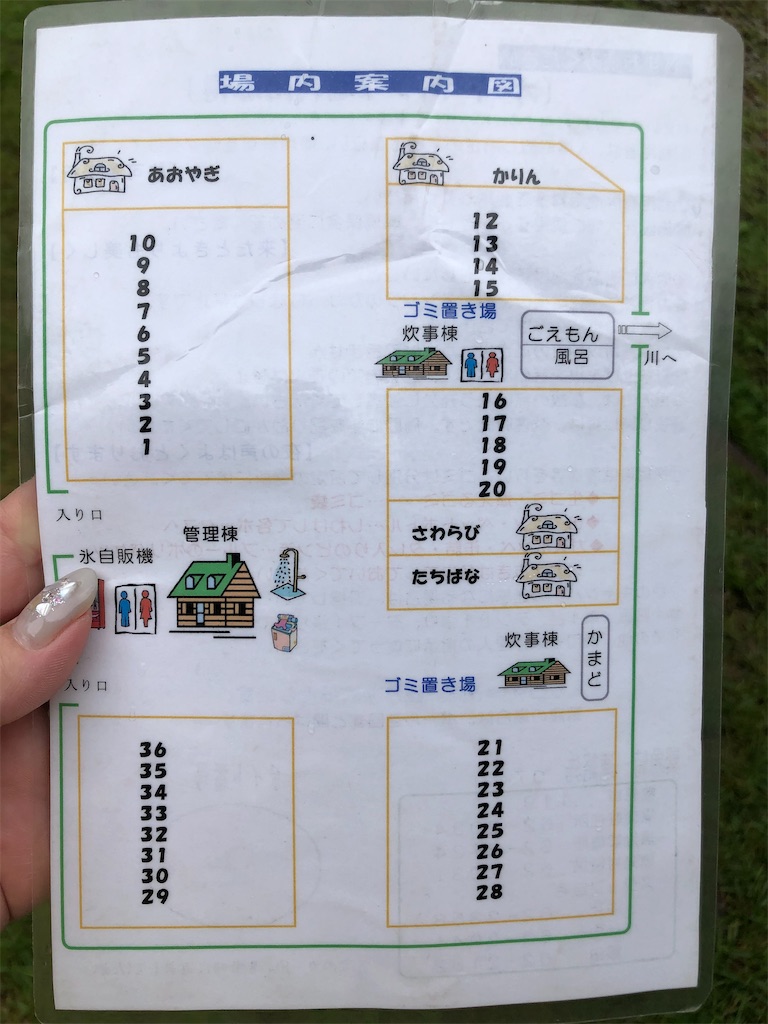 場内案内図
あおやぎ
10
9
8
7
6
5
4
3
2
1
かりん
12
13
14
15
ゴミ置き場
炊事棟
ごえもん
風呂
川へ
16
17
18
19
20
さわらび
たちばな
入り口
管理棟
氷自販機
入り口
炊事棟
かまど
ゴミ置き場
36
35
34
33
32
31
30
29
21
22
23
24
25
26
27
28